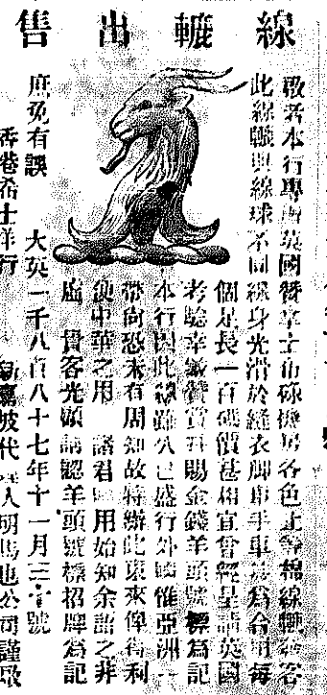 線轆出售
敬者本行專由英國贊[...]士的碌機房各色上等棉線轆[...]客
此線轆與線球不同線身光滑於縫衣脚車手車[...]為合用每
個足長一百碼價甚相宜曾經呈請英國
考驗幸[...]贊賞并賜金錢羊頭號標為記
本行因此線雖久已盛行外國惟亞洲一
帶尚恐未有周知故特辦此[...]來俾得利
便中華之用 諸君[...]用始知余[...]之非
[...] 貴客光顧請認羊頭號標招牌為記
庶免有誤 大英一千八百八十七年十一月三[...]號
香港希士洋行 新嘉坡代[...]人明馬也公司謹啟